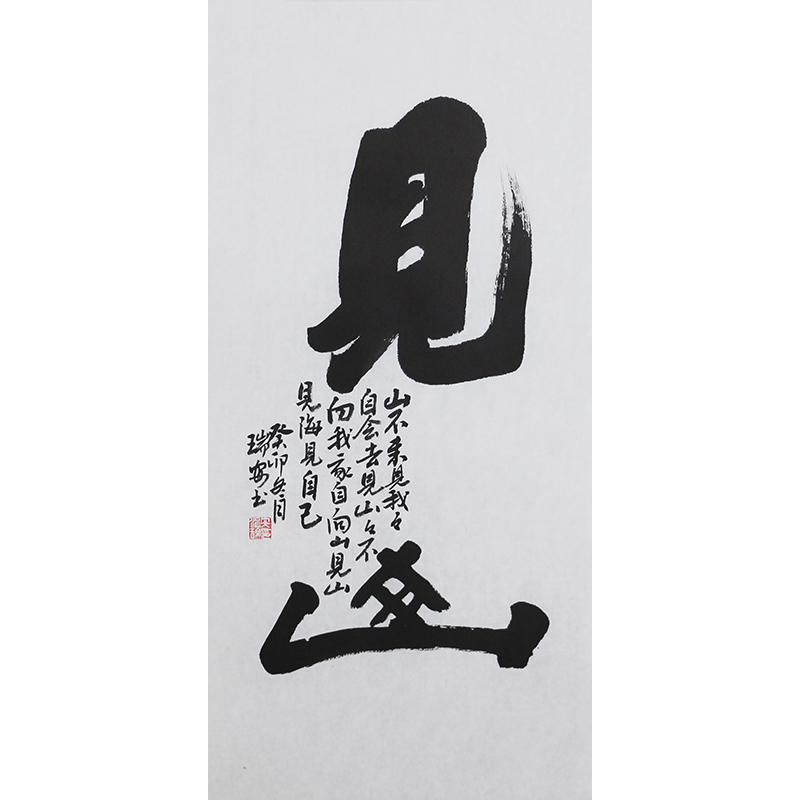 見山
山不来見我々
自会去見山々不
向我自向山見山
見海見自己
癸卯冬月
瑞安书